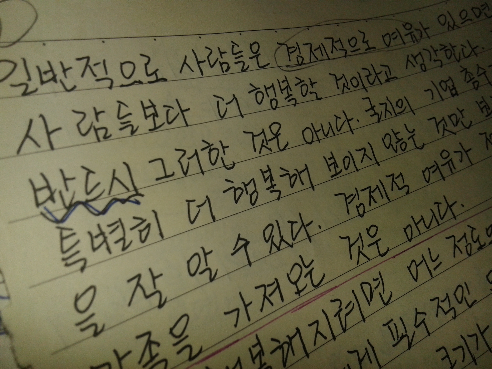 일반적으로 사람들은 경제적으로 여유가 있으면
사람들보다 더 행복할 것이라고 생각한다.
반드시 그러한 것은 아니다. 굴지의 기업 총수
특별히 더 행복해 보이지 않는 것만 보
을 잘 알 수 있다. 경제적 여유가
만족을 가져오는 것은 아니다.
행복해지려면 어느 정도
필수적인
크기가